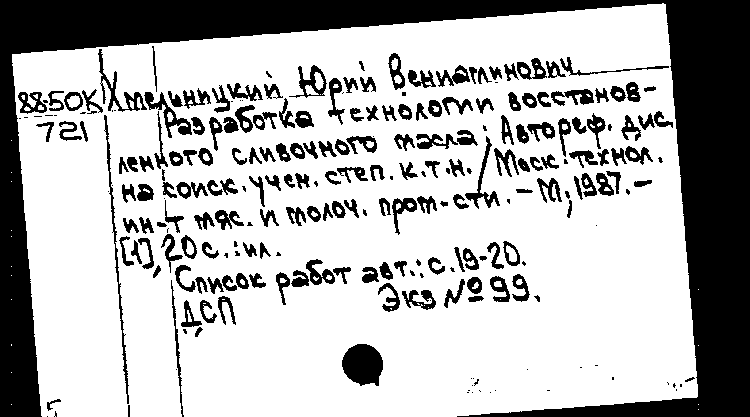 88-50К Хмельницкий, Юрий Вениаминович.
721 Разработка технологии восстанов-
ленного сливочного масла: Автореф. дис.
на соиск. учен. степ. к.т.н. / Моск. технол.
ин-т мяс. и молоч. пром-сти. – М., 1987. –
[1], 20 с.: ил.
Список работ авт.: с. 19-20.
ДСП Экз № 99.